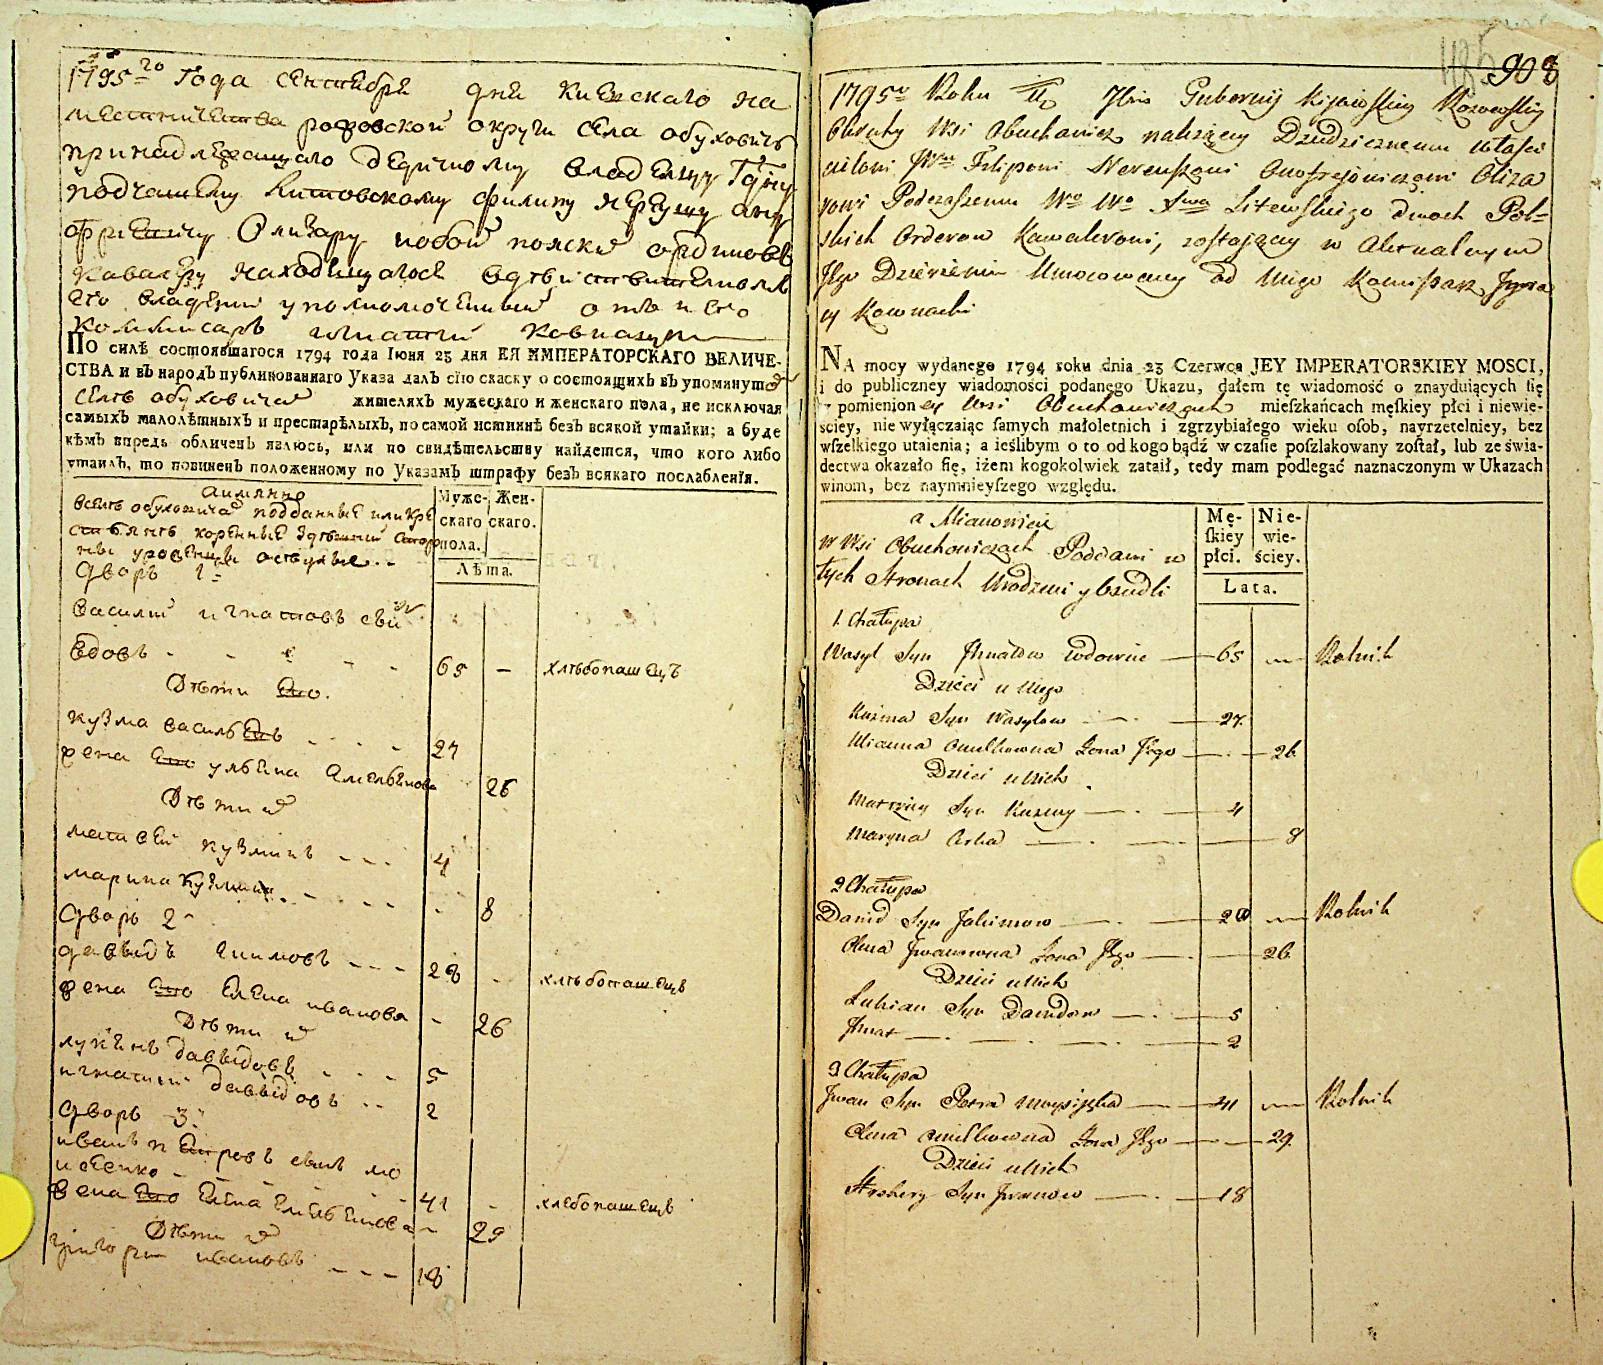 1795го Года сентебря дня Киевскаго на
местничества рафовской округи села обуховичъ
принадлежащаго дедичному владельцу Гдну
подчашему Литовскому филипу нереушу ону
офриевичу Олизару обои полски ординовъ
кавалеру находящагося вдействителномъ
его владении уполномоченный отъ него
коммисаръ игнатий ковнацки
ПО силѣ состоявшагося 1794 года Іюня 23 дня ЕЯ ИМПЕРАТОРСКАГО ВЕЛИЧЕ-
СТВА и въ народъ публикованнаго Указа далъ сію сказку о состоящихъ въ упомянутой
селѣ обуховичах жителяхъ мужескаго и женскаго пола, не исключая
самыхъ малолѣтныхъ и престарѣлыхъ, по самой истиннѣ безъ всякой утайки; а буде
кѣмъ впредь обличенъ явлюсь, или по свидѣтельству найдется, что кого либо
утаилъ, то повиненъ положенному по Указамъ штрафу безъ всякаго послабленія.
аимянно
Муже- Жен-
скаго скаго.
пола.
Лѣта.
вселѣ обуховичах подданные или кре
стьянѣ коренные здѣшний сторо
ны уроженцы оседлые
Дворъ 1й
василий игнатовъ снъ
вдовъ 65 — хлѣбопашецъ
Дѣти Его.
кузма васильевъ 27
жена Его ульяна Амельянова 26
Дѣти их
матвей кузминъ 4
марина Кузмина 8
Дворъ 2
давыдъ якимовъ 28 хлѣбопашецъ
жена Его Елена иванова 26
Дѣти их
лукянъ давыдовъ 5
игнатий давыдовъ 2
Дворъ 3
иванъ петровъ снъ мо
исеенко 41 хлебопашецъ
жена Его Елена Емельянова 29
Дѣти их
григори ивановъ 18
908
1795o Roku Jbris Gubernij Kijowskiey Rozewskiey
Okruhy Wsi Obuchowicz należącey Dziedzicznemu właści
cielowi JWu Filiponi Nereuszowi Onofrejowiczowi Oliza
rowi Podczaszemu Wo Wo Xswa Litewskiego dwoch Pol-
skich Orderow Kawalerowi, zostaiącey w Aktualnym
Jego Dzierżeniu Umocowany od niego Komisarz Jgna
cy Kownacki
NA mocy wydanego 1794 roku dnia 23 Czerwca JEY IMPERATORSKIEY MOSCI,
i do publiczney wiadomości podanego Ukazu, dałem tę wiadomość o znayduiących ſię
w pomienioney Wsi Obuchowiczach mieſzkańcach męſkiey płci i niewie-
ściey, nie wyłączaiąc ſamych małoletnich i zgrzybiałego wieku osob, nayrzetelniey, bez
wſzelkiego utaienia; a ieślibym o to od kogo bądź w czaſie poſzlakowany zoſtał, lub ze świa-
dectwa okazało ſię, iżem kogokolwiek zataił, tedy mam podlegać naznaczonym w Ukazach
winom, bez naymnieyſzego względu.
a Mianowicie
Mę- Nie-
ſkiey wie-
płci. ściey.
Lata.
w Wsi Obuchowiczach Poddani w
tych Stronach Urodzeni y Osiedli
1. Chałupa
Wasyl Syn Jhnatow wdowiec 65 Rolnik
Dzieci u niego
Kuzma Syn Wasylow 27
Ulianna Omelkowna Żona Jego 26
Dzieci u nich
Matwiey Syn Kuzmy 4
Maryna Corka 8
2 Chałupa
Dawid Syn Jakimow 28 Rolnik
Olena Jwanowna Żona Jego 26
Dzieci u nich
Lukian Syn Dawidow 5
Jhnat 2
3 Chałupa
Jwan Syn Petra Moysijenka 41 Rolnik
Olena Omelkowna Żona Jego 29
Dzieci u nich
Hrehory Syn Jwanow 18